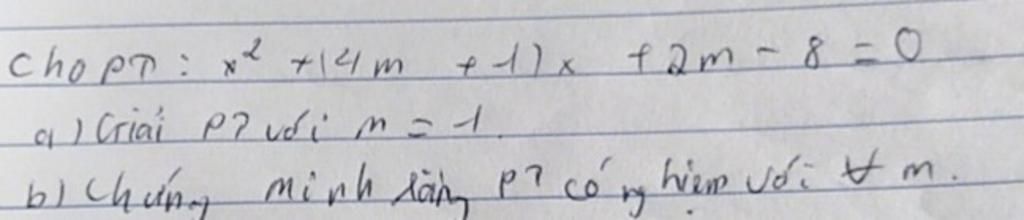 Cho PT: x² + (4m + 1)x + 2m - 8 = 0
a) Giải PT với m = 1.
b) Chứng minh rằng PT có nghiệm với ∀ m.